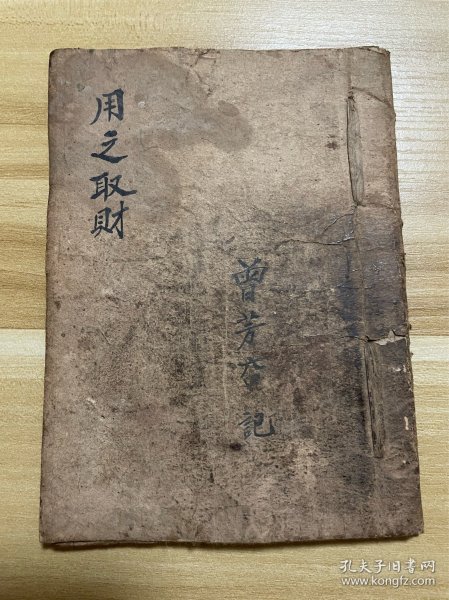 用之取財
曾芳 記
孔夫子旧书网
www.kongfz.com